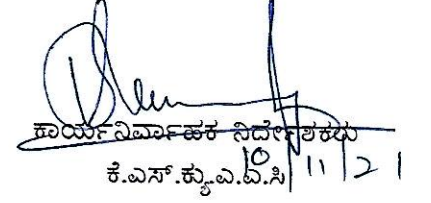 ಕಾರ್ಯನಿರ್ವಾಹಕ ನಿರ್ದೇಶಕರು
ಕೆ.ಎಸ್.ಕ್ಯು.ಎ.ಎ.ಸಿ
10/11/21